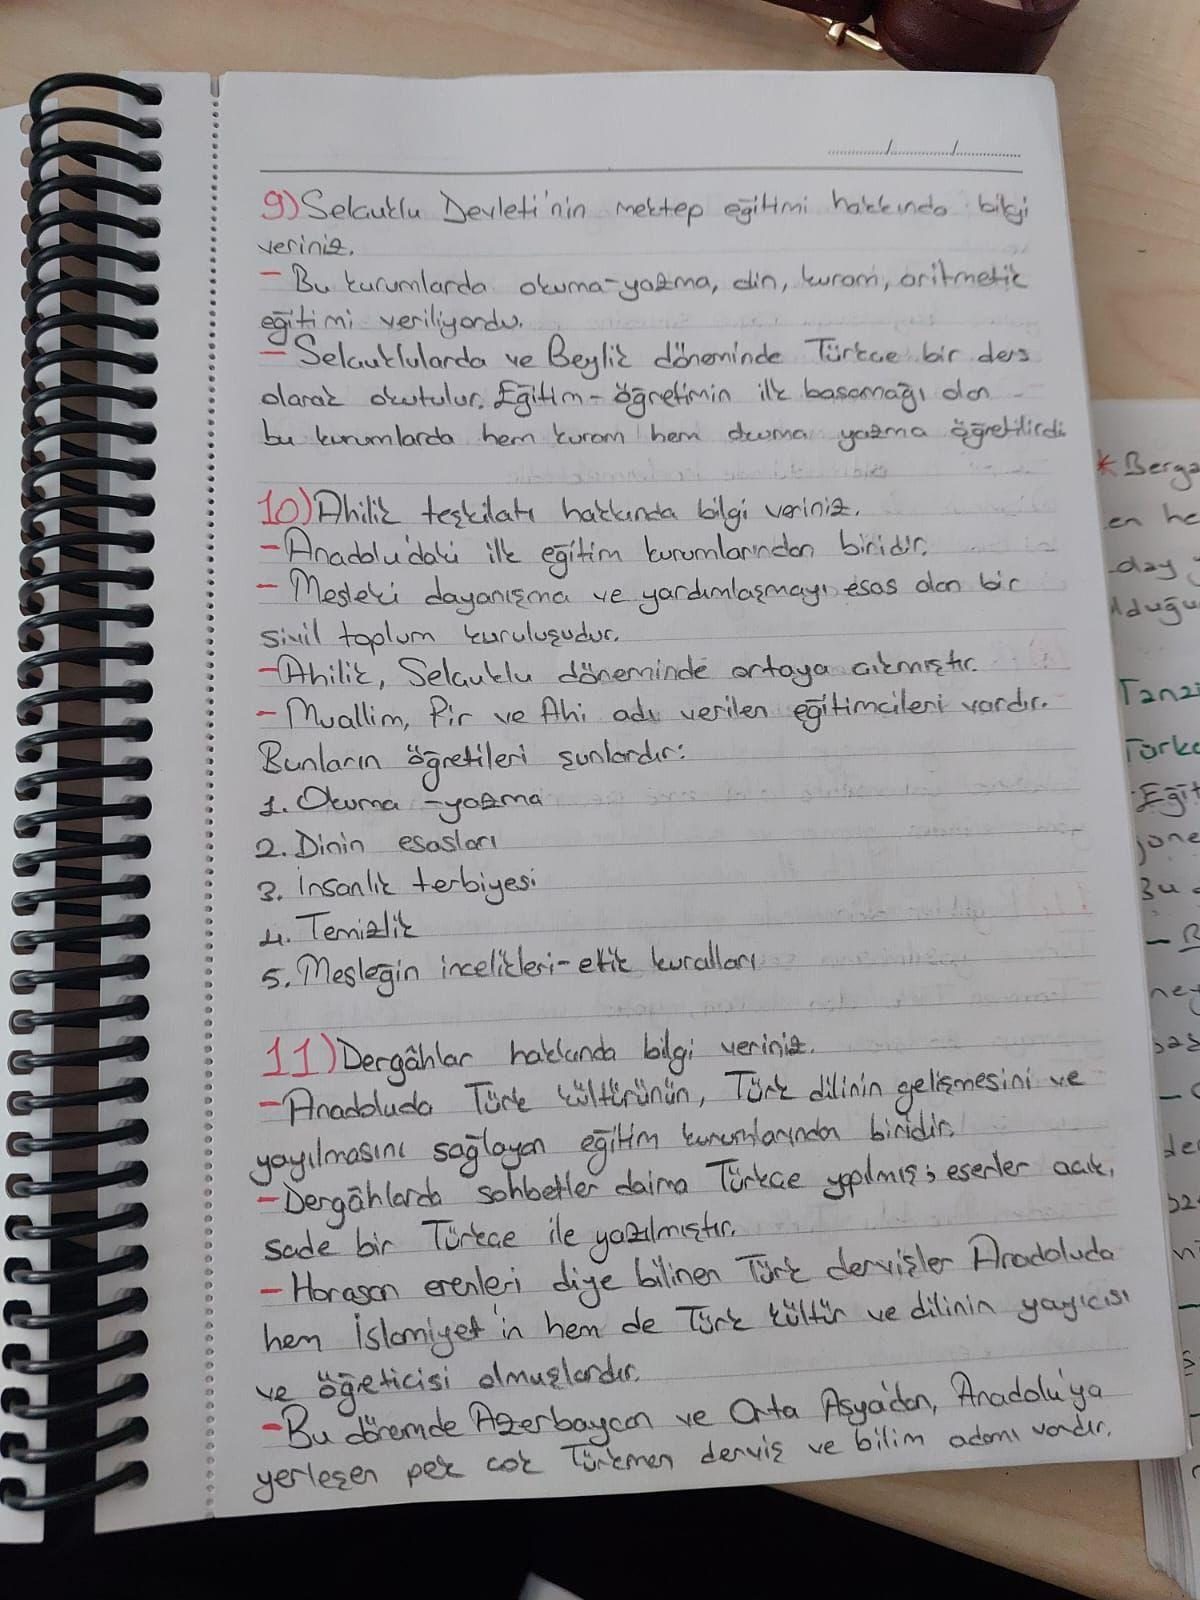 9) Selçuklu Devleti'nin mektep eğitimi hakkında bilgi
veriniz.
- Bu kurumlarda okuma-yazma, din, kuram, aritmetik
eğitimi veriliyordu.
- Selçuklularda ve Beylik döneminde Türkçe bir ders
olarak okutulur. Eğitim-öğretimin ilk basamağı olan
bu kurumlarda hem kuram hem okuma yazma öğretilirdi.
10) Ahilik teşkilatı hakkında bilgi veriniz.
- Anadolu'daki ilk eğitim kurumlarından biridir.
- Mesleki dayanışma ve yardımlaşmayı esas alan bir
sivil toplum kuruluşudur.
- Ahilik, Selçuklu döneminde ortaya çıkmıştır.
- Muallim, Pir ve Ahi adı verilen eğitimcileri vardır.
Bunların öğretileri şunlardır:
1. Okuma-yazma
2. Dinin esasları
3. İnsanlık terbiyesi
4. Temizlik
5. Mesleğin incelikleri-etik kuralları
11) Dergâhlar hakkında bilgi veriniz.
- Anadoluda Türk kültürünün, Türk dilinin gelişmesini ve
yayılmasını sağlayan eğitim kurumlarından biridir.
- Dergâhlarda sohbetler daima Türkçe yapılmış; eserler açık,
sade bir Türkçe ile yazılmıştır.
- Horasan erenleri diye bilinen Türk dervişler Anadoluda
hem İslamiyet'in hem de Türk kültür ve dilinin yayıcısı
ve öğreticisi olmuşlardır.
- Bu döremde Azerbaycan ve Orta Asya'dan, Anadolu'ya
yerleşen pek çok Türkmen derviş ve bilim adamı vardır.
* Berga
en he
olay
lduğu
Tanzi
Türkç
Eğit
yöne
Bu
- B
ney
baş
den